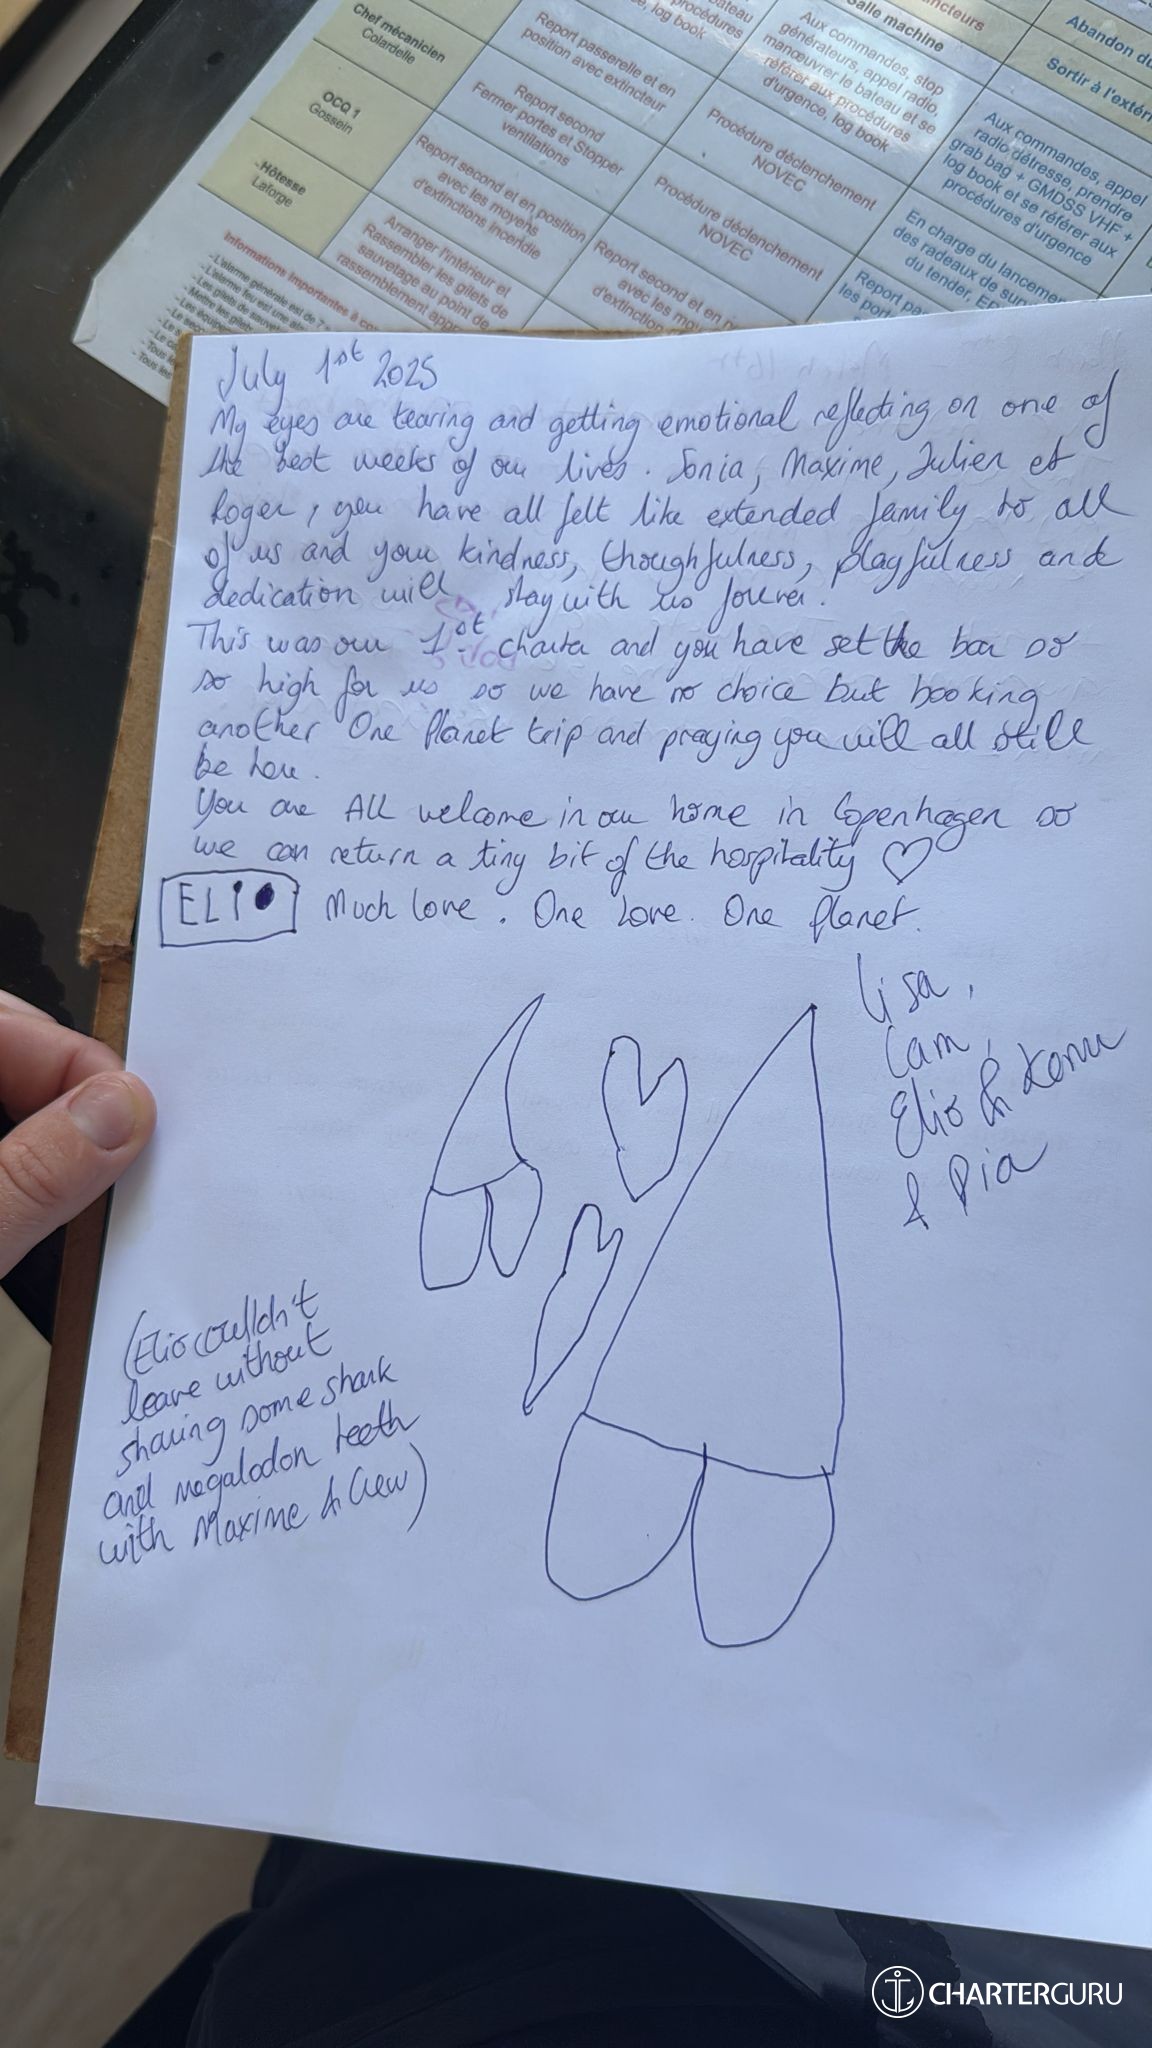 Chef mécanicien
Colardelle
Report passerelle et en
position avec extincteur
log book
Aux commandes, stop
générateurs, appel radio,
manœuvrer le bateau et se
référer aux procédures
d'urgence, log book
Salle machine
Abandon du
Sortir à l'extéri
OCQ 1
Gossein
Report second
Fermer portes et Stopper
ventilations
Procédure déclenchement
NOVEC
Aux commandes, appel
radio détresse, prendre
grab bag + GMDSS VHF +
log book et se référer aux
procédures d'urgence
Hôtesse
Laforge
Report second et en position
avec les moyens
d'extinctions incendie
Procédure déclenchement
NOVEC
En charge du lancemen
des radeaux de surv
du tender,
Arranger l'intérieur et
Rassembler les gilets de
sauvetage au point de
rassemblement
Report second et en
avec les
d'extinction
Report
les
Informations Importantes à
July 1st 2025
My eyes are tearing and getting emotional reflecting on one of
the best weeks of our lives. Sonia, Maxime, Julien et
Roger, you have all felt like extended family to all
of us and your kindness, thoughfulness, playfulness and
dedication will stay with us forever.
This was our 1st charter and you have set the bar so
so high for us so we have no choice but booking
another One Planet trip and praying you will all still
be here.
You are ALL welcome in our home in Copenhagen so
we can return a tiny bit of the hospitality ♡
ELIO Much love. One Love. One Planet.
Lisa,
Cam,
Elio &
& Pia
(Elio couldn't
leave without
sharing some shark
and megalodon teeth
with Maxime & Crew)
CHARTERGURU